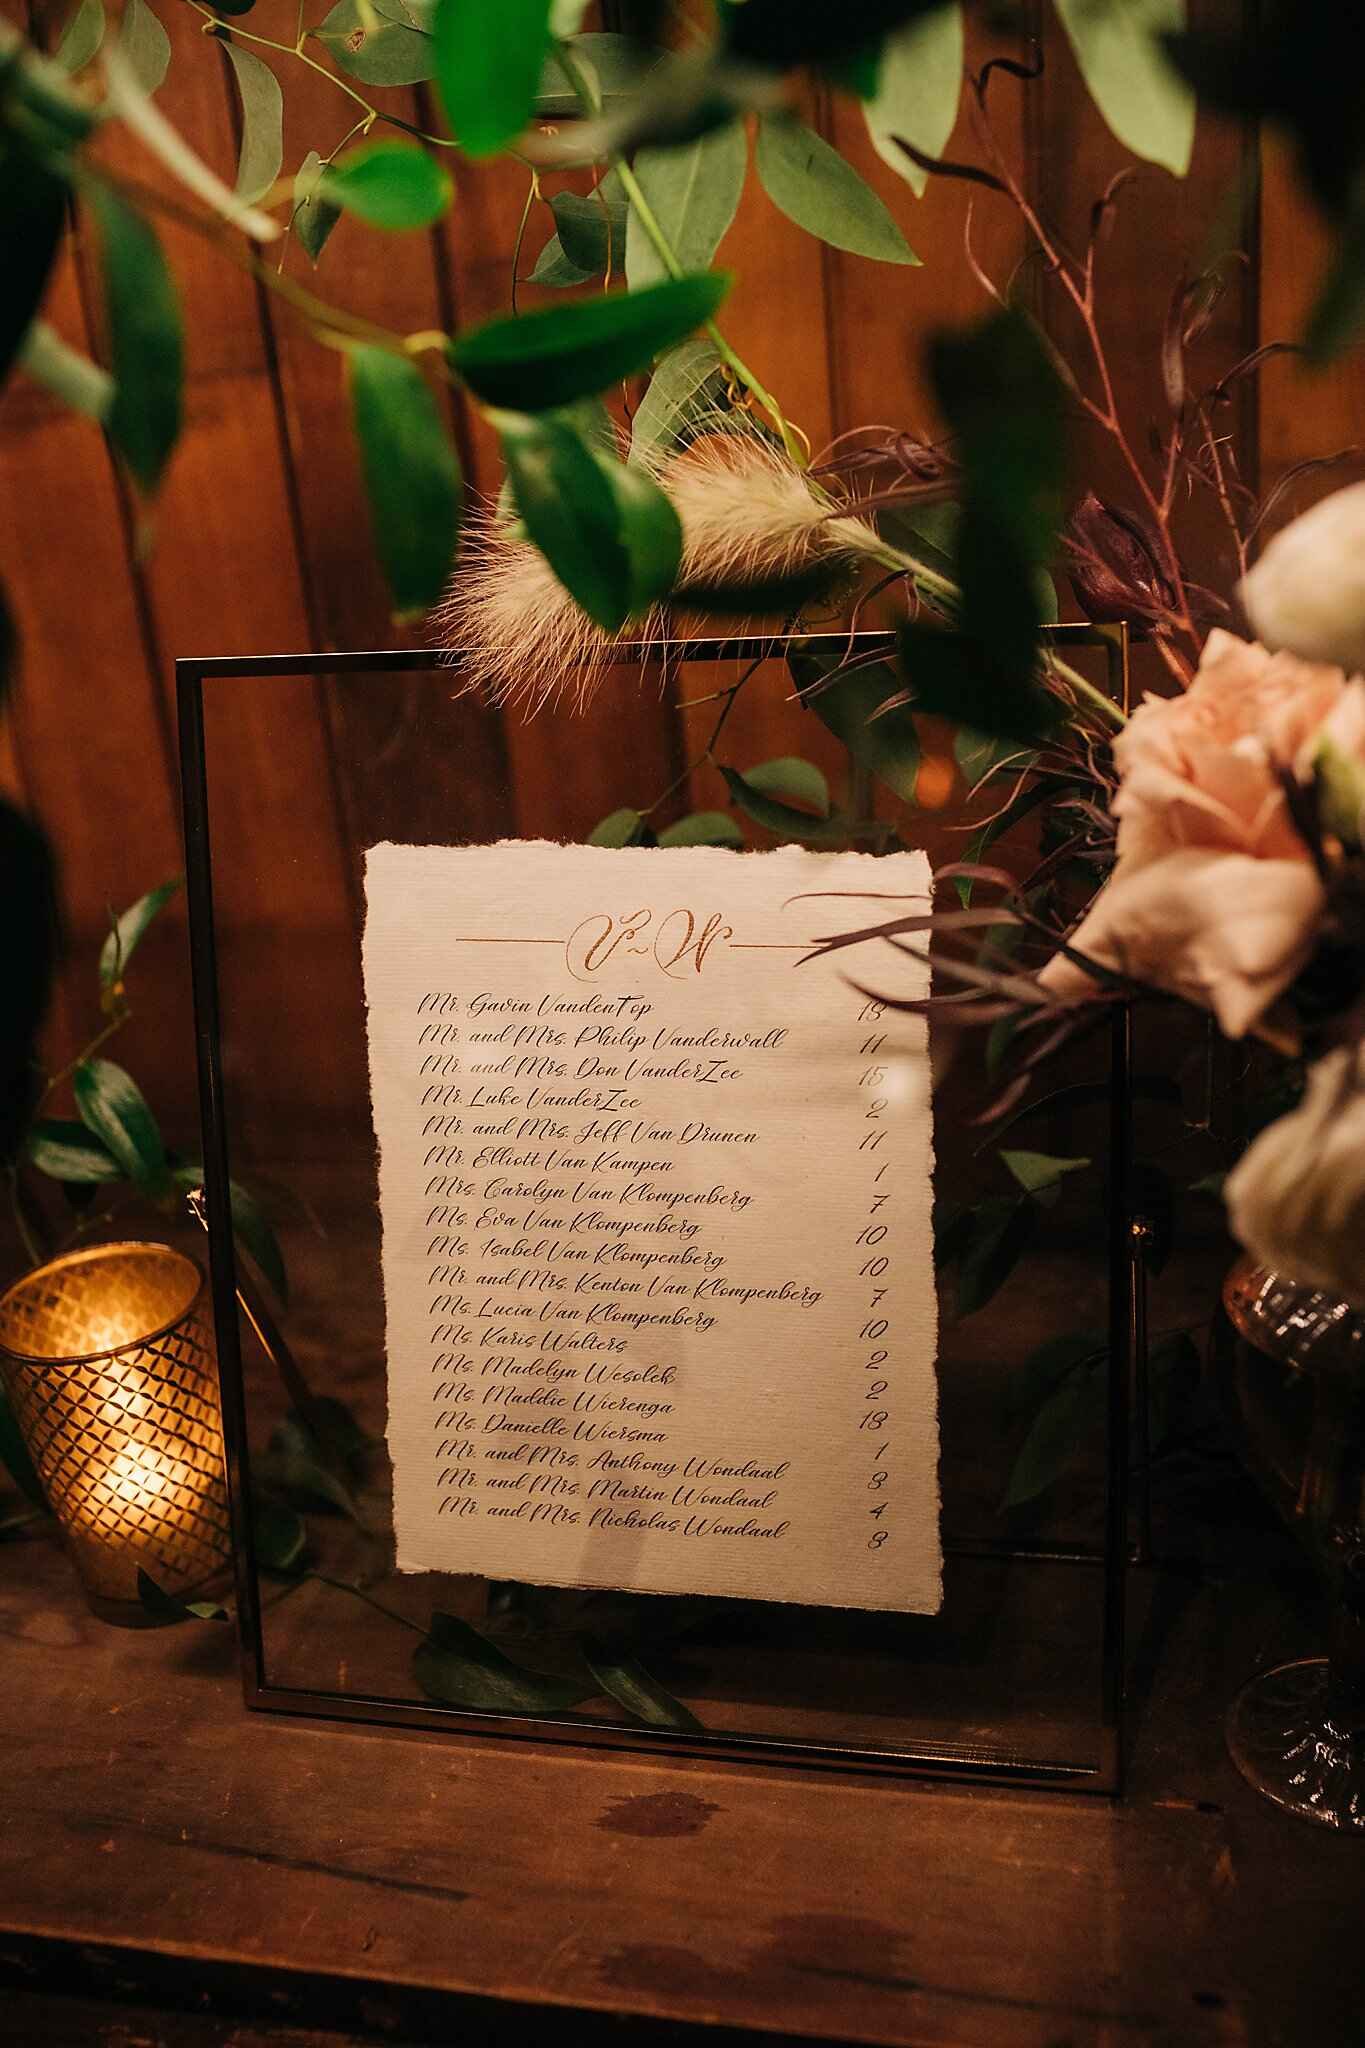 V ~ W
Mr. Gavin VandenTop 18
Mr. and Mrs. Philip Vanderwall 11
Mr. and Mrs. Don VanderZee 15
Mr. Luke VanderZee 2
Mr. and Mrs. Jeff Van Drunen 11
Mr. Elliott Van Kampen 1
Mrs. Carolyn Van Klompenberg 7
Ms. Eva Van Klompenberg 10
Ms. Isabel Van Klompenberg 10
Mr. and Mrs. Kenton Van Klompenberg 7
Ms. Lucia Van Klompenberg 10
Ms. Karis Walters 2
Ms. Madelyn Wesolek 2
Ms. Maddie Wierenga 18
Ms. Danielle Wiersma 1
Mr. and Mrs. Anthony Wondaal 8
Mr. and Mrs. Martin Wondaal 4
Mr. and Mrs. Nicholas Wondaal 8